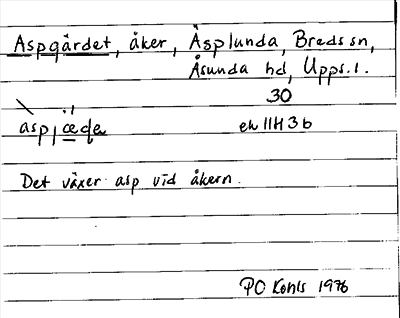 Aspgärdet, åker, Åsplunda, Breds sn,
Åsunda hd, Upps. l.
30
ek 11H 3b
Det växer asp vid åkern.
PO Konls 1976